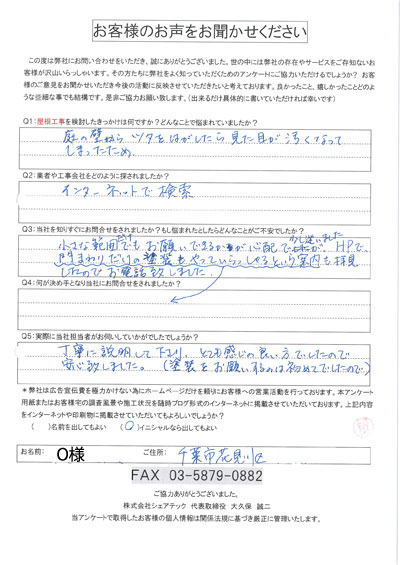 お客様のお声をお聞かせください
この度は弊社にお問い合わせをいただき、誠にありがとうございました。世の中には弊社の存在やサービスをご存知ないお
客様が沢山いらっしゃいます。その方たちに弊社をよく知っていただくためのアンケートにご協力いただけるでしょうか? お客
様のご意見をお聞かせいただき今後の活動に反映させていただきたいと考えております。良かったこと、嬉しかったことどのよ
うな些細な事でも結構です。是非ご協力お願い致します。(出来るだけ具体的に書いていただければ幸いです)
Q1:屋根工事を検討したきっかけは何ですか?どんなことで悩まれていましたか?
庭の壁からツタをはがしたら見た目が汚くなって
しまったため。
Q2:業者や工事会社をどのように探されましたか?
インターネットで検索
Q3:当社を知りすぐにお問合せをされましたか?もし悩まれたとしたらどんなことがご不安でしたか?
小さな範囲だけでもお願いできるかが心配で少し迷いました HPで、
門まわりだけの塗装もやっていらっしゃるという案内も拝見
したのでお電話致しました。
Q4:何が決め手となり当社にお問合せをされましたか?
Q5:実際に当社担当者がお伺いしていかがでしたでしょうか?
丁寧に説明して下さり、とても感じの良い方でしたので
安心致しました。(塗装をお願いするのは初めてでしたので)
*弊社は広告宣伝費を極力かけない為にホームページだけを頼りにお客様への営業活動を行っております。本アンケート
用紙またはお客様宅の調査風景や施工状況を随時ブログ形式でインターネットに掲載させていただいております。上記内容
をインターネットや印刷物に掲載させていただいてもよろしいでしょうか?
( )名前を出してもよい (○)イニシャルなら出してもよい
お名前: O様 ご住所: 千葉市花見川区
FAX 03-5879-0882
ご協力ありがとうございました。
株式会社シェアテック 代表取締役 大久保 誠二
当アンケートで取得したお客様の個人情報は関係法規に基づき厳正に管理いたします。